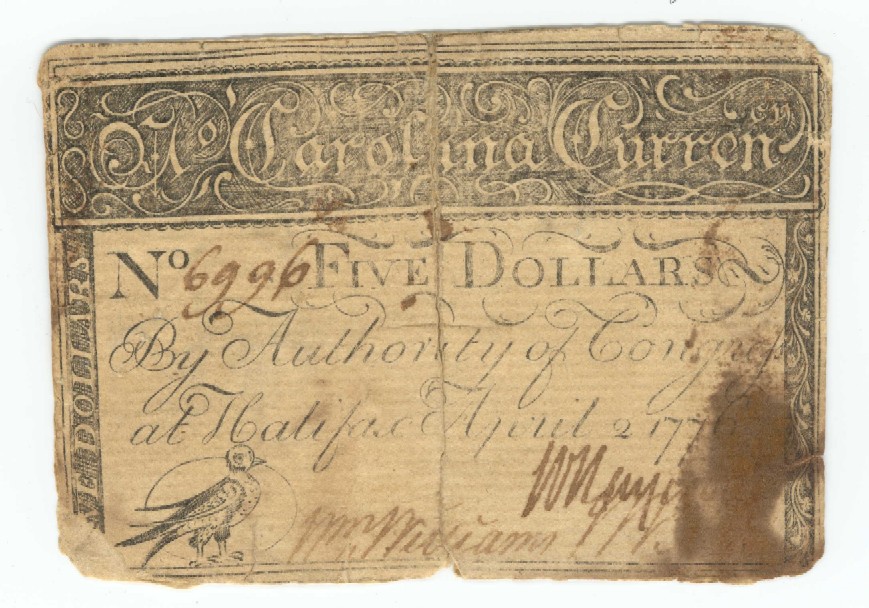 No Carolina Currency
No 6996 FIVE DOLLARS
By Authority of Congress
at Halifax April 2 1776
Wm Williams
DOLLARS